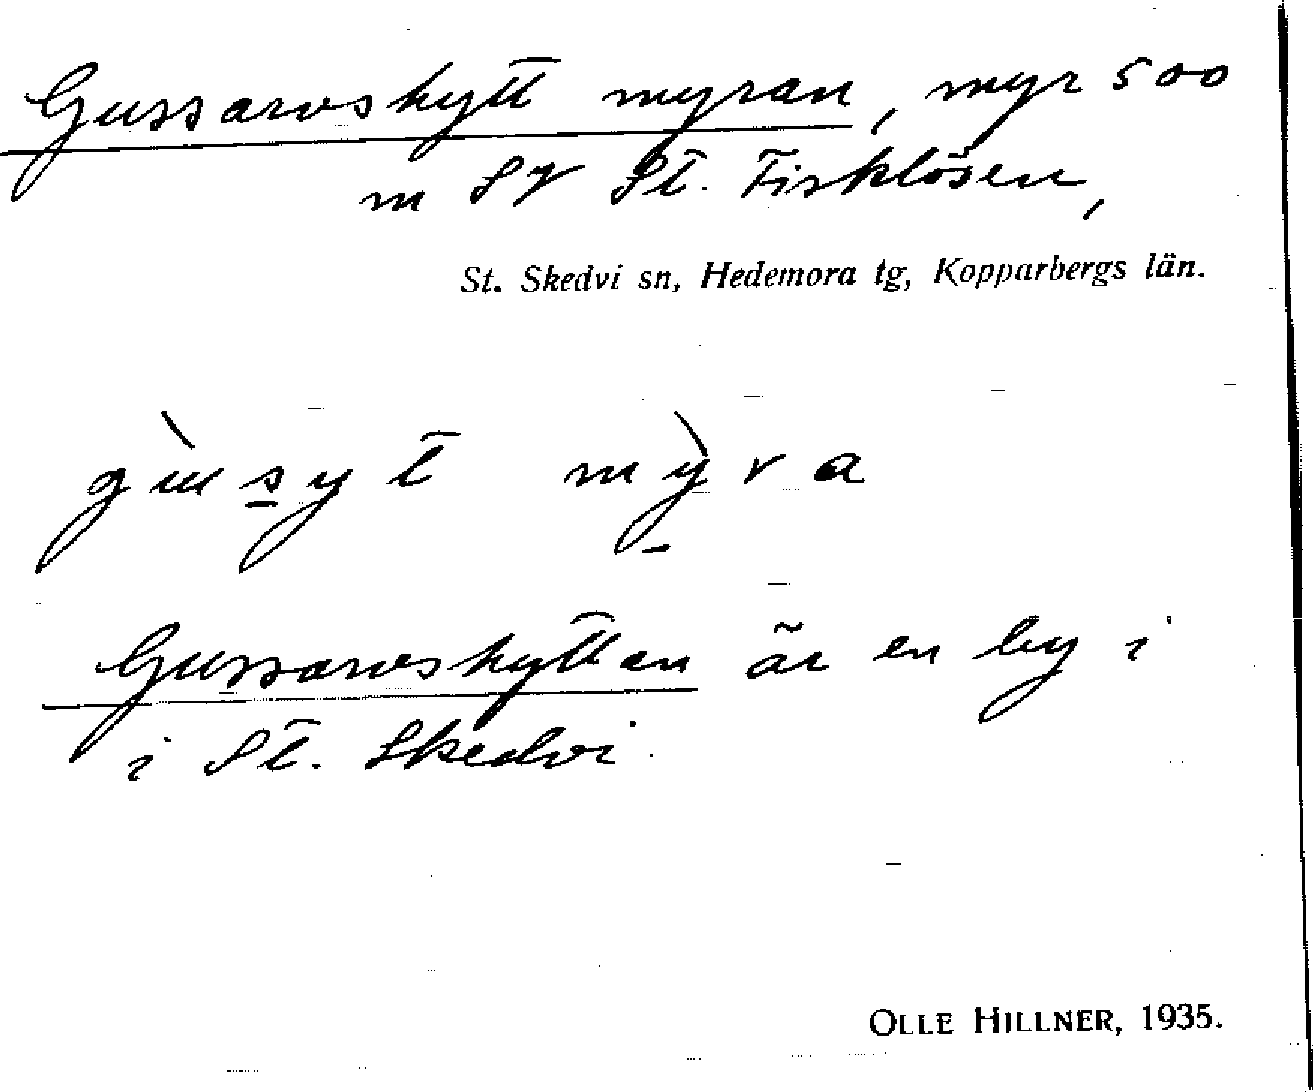 Gussarvshytt myran, myr 500
m SV St. Fisklösen,
St. Skedvi sn, Hedemora tg, Kopparbergs län.
Gussarvshyttan är en by i
i St. Skedvi.
OLLE HILLNER, 1935.